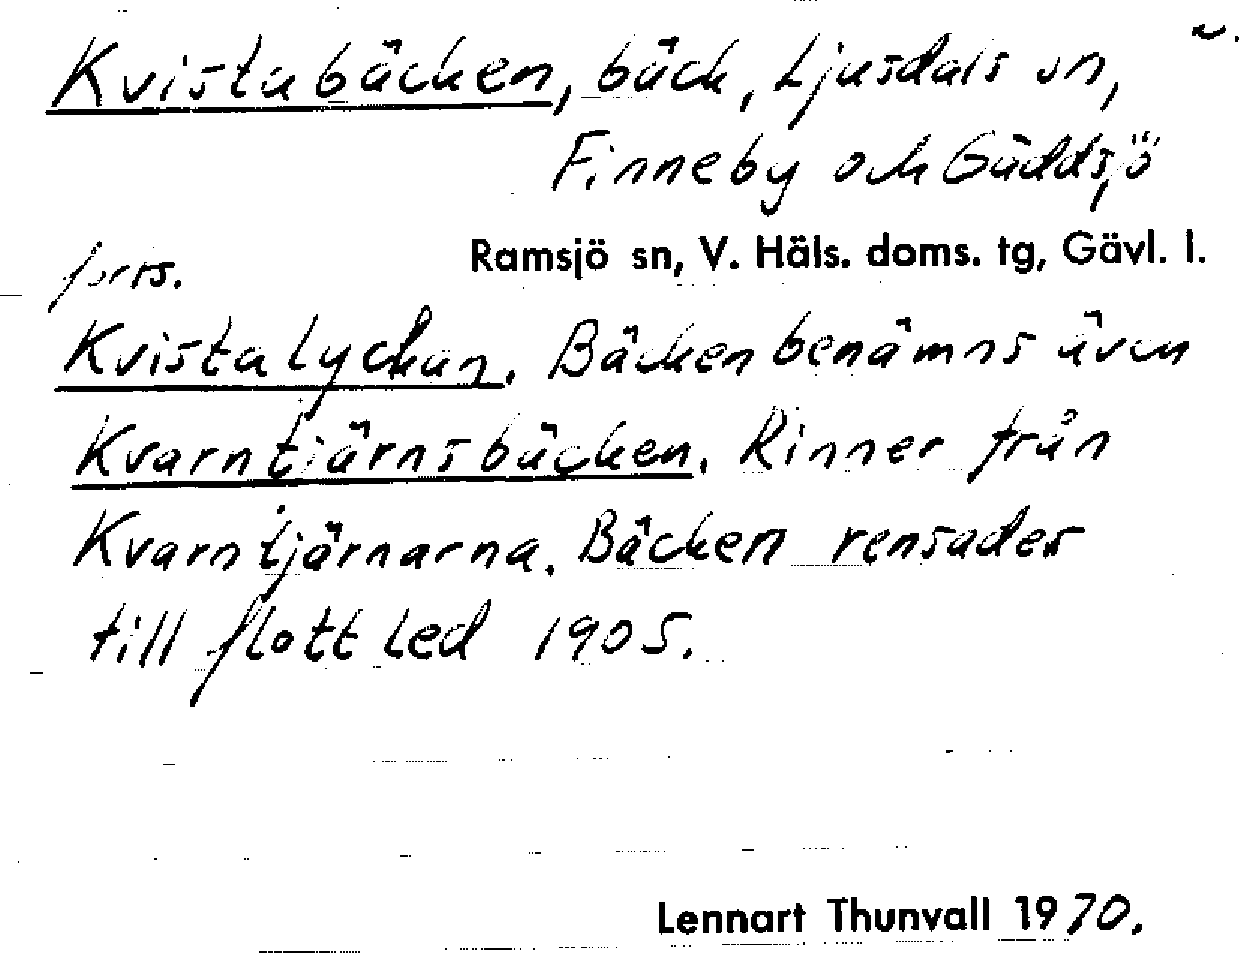 Kvistabäcken, bäck, Ljusdals sn,
Finneby och Gäddsjö
Ramsjö sn, V. Häls. doms. tg, Gävl. l.
forts.
Kvistalyckan. Bäcken benämns även
Kvarntjärnsbäcken. Rinner från
Kvarntjärnarna. Bäcken rensades
till flottled 1905.
Lennart Thunvall 1970.